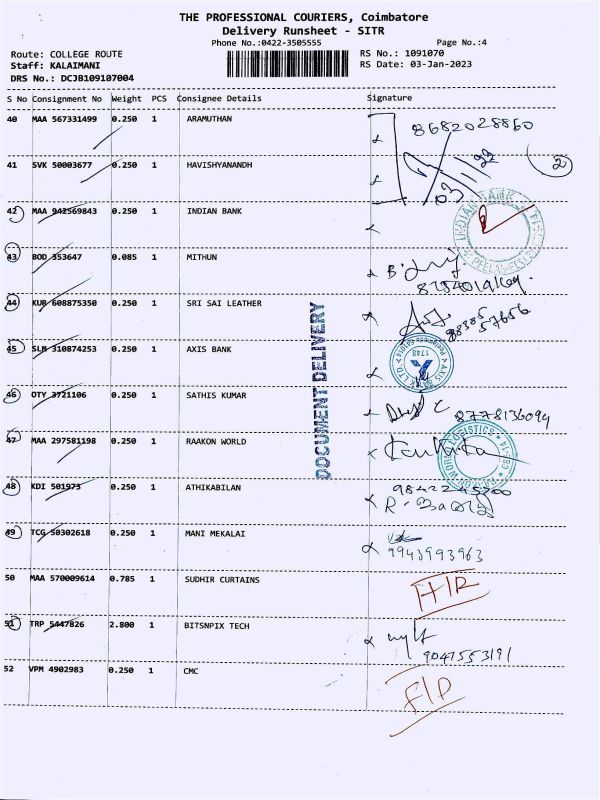 THE PROFESSIONAL COURIERS, Coimbatore
Delivery Runsheet - SITR
Phone No.:0422-3505555 Page No.:4
Route: COLLEGE ROUTE RS No.: 1091070
Staff: KALAIMANI RS Date: 03-Jan-2023
DRS No.: DCJB109107004
S No Consignment No Weight PCS Consignee Details Signature
40 MAA 567331499 0.250 1 ARAMUTHAN 8682028860
41 SVK 50003677 0.250 1 HAVISHYANANDH 2
42 MAA 942569843 0.250 1 INDIAN BANK
43 BOD 353647 0.085 1 MITHUN
44 KUR 608875350 0.250 1 SRI SAI LEATHER
45 SLM 310874253 0.250 1 AXIS BANK
46 OTY 3721106 0.250 1 SATHIS KUMAR 8778136094
47 MAA 297581198 0.250 1 RAAKON WORLD
48 KDI 501973 0.250 1 ATHIKABILAN
49 TCG 50302618 0.250 1 MANI MEKALAI 9943993963
50 MAA 570009614 0.785 1 SUDHIR CURTAINS
51 TRP 5447826 2.800 1 BITSNPIX TECH 9047553191
52 VPM 4902983 0.250 1 CMC
DOCUMENT DELIVERY